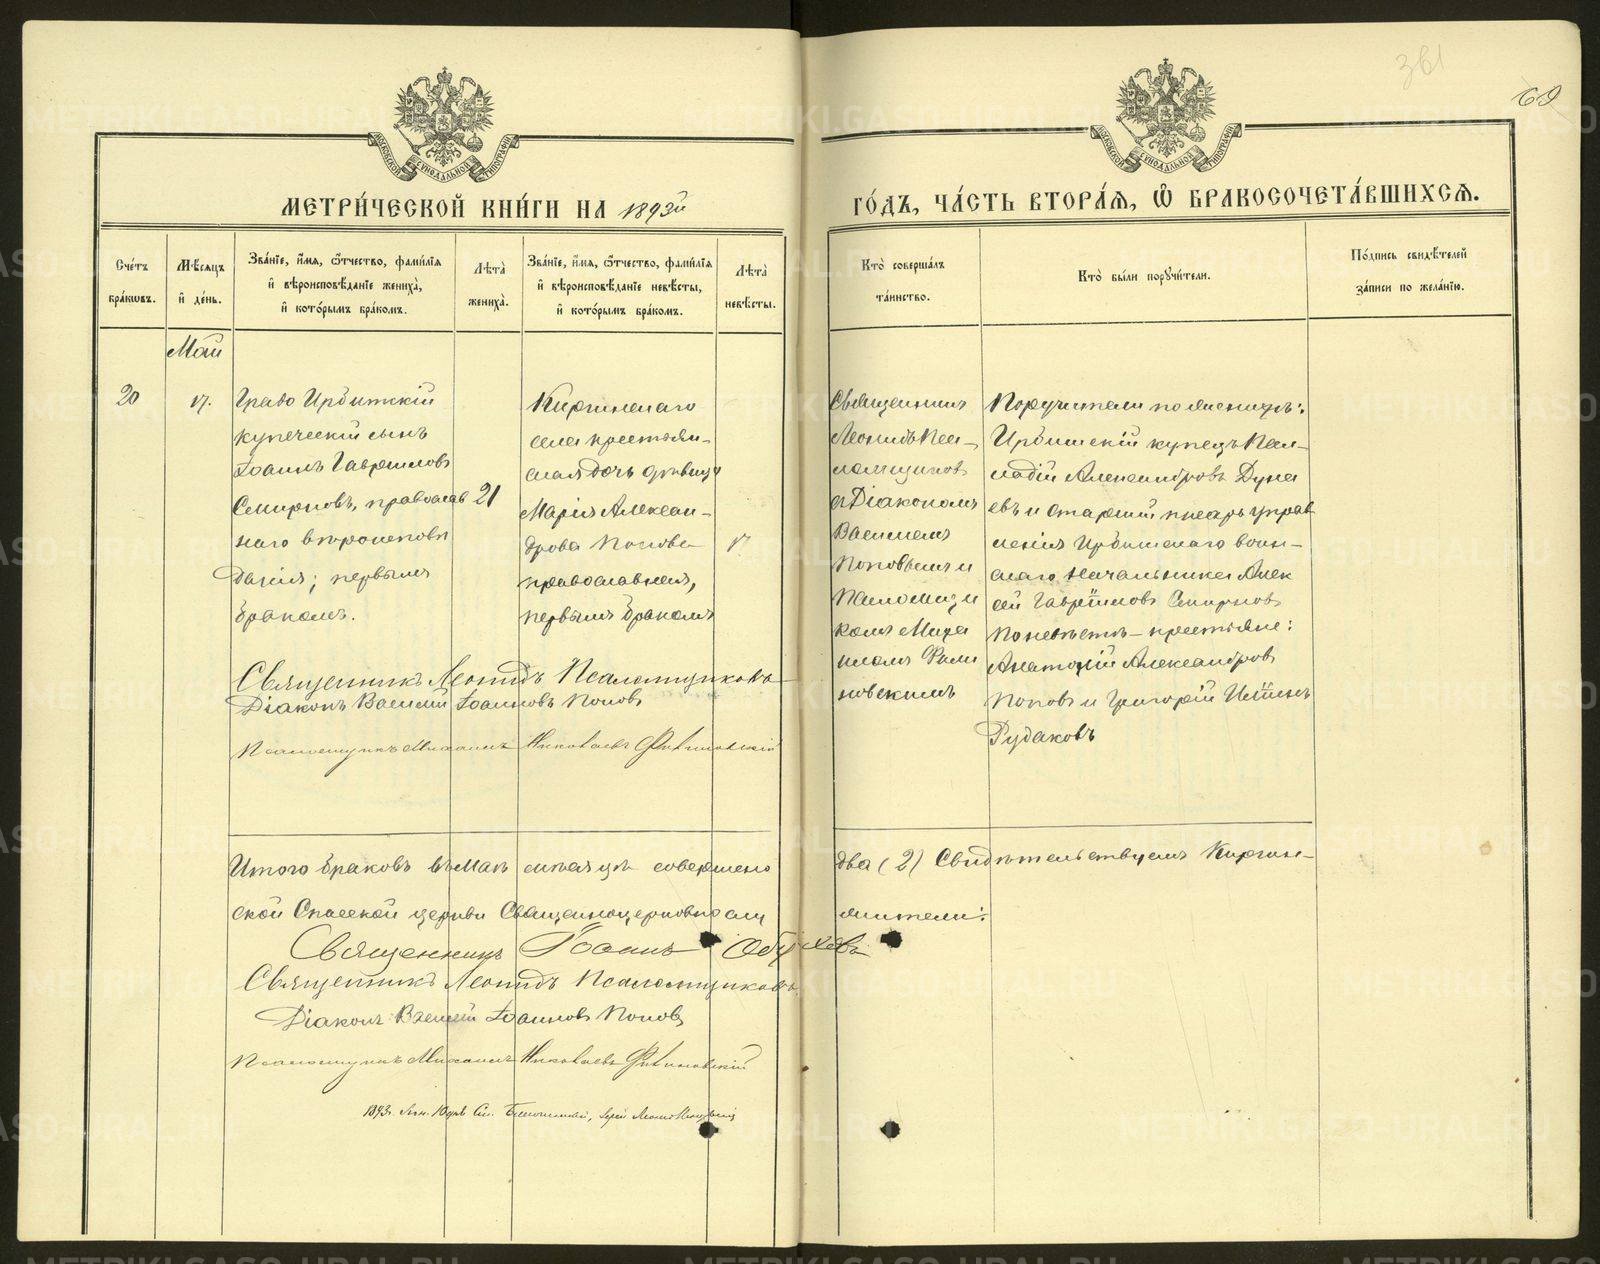 361
69
МОСКОВСКОЙ СУНОДАЛЬНОЙ ТИПОГРАФІИ
МОСКОВСКОЙ СУНОДАЛЬНОЙ ТИПОГРАФІИ
МЕТРИ́ЧЕСКОЙ КНИ́ГИ НА 1893й
ГО́ДЪ, ЧА́СТЬ ВТОРА́Я, Ѡ БРАКОСОЧЕТА́ВШИХСЯ.
Сче́тъ бра́кѡвъ.
Мѣ́сяцъ и҆ де́нь.
Зва́нїе, и҆́мя, ѻ҆́тчество, фами́лїя
и҆ вѣроисповѣ́данїе жениха̀,
и҆ кото́рымъ бра́комъ.
Лѣта̀ жениха̀.
Зва́нїе, и҆́мя, ѻ҆́тчество, фами́лїя
и҆ вѣроисповѣ́данїе невѣ́сты,
и҆ кото́рымъ бра́комъ.
Лѣта̀ невѣ́сты.
Кто̀ соверша́лъ та́инство.
Кто̀ бы́ли порꙋчи́тели.
По́дпись свидѣ́телей
за́писи по жела́нїю.
Май
20
17.
Градо Ирбитскій
купеческій сынъ
Іоаннъ Гавриловъ
Смирновъ, православ
наго вѣроисповѣ
данія; первымъ
бракомъ.
21
Киргинскаго
села крестьян-
ская дочь дѣвица
Марія Алексан-
дрова Попова
православная,
первымъ бракомъ
17
Священникъ
Леонидъ Пса-
ломщиковъ
съ Діакономъ
Василіемъ
Поповымъ и
Псаломщи
комъ Миха
иломъ
новскимъ
Поручители по женихѣ:
Ирбитскій купецъ Пал-
ладій Александровъ Дуна
евъ и старшій писарь управ
ленія Ирбитскаго воин-
скаго Начальника Алек
сѣй Гавріиловъ Смирновъ
По невѣстѣ – крестьяне:
Анатолій Александровъ
Поповъ и Григорій
Рудаковъ
Священникъ Леонидъ Псаломщиковъ
Діаконъ Василій Іоанновъ Поповъ
Псаломщикъ Михаилъ Николаевъ
Итого браковъ въ Маѣ мѣсяцѣ совершено
два (2) Свидѣтельствуемъ Киргин-
ской Спасской церкви Священноцерковнослу
жители:
Священникъ Іоаннъ Обуховъ
Священникъ Леонидъ Псаломщиковъ
Діаконъ Василій Іоанновъ Поповъ
Псаломщикъ Михаилъ Николаевъ
1893г.
METRIKI.GASO-URAL.RU